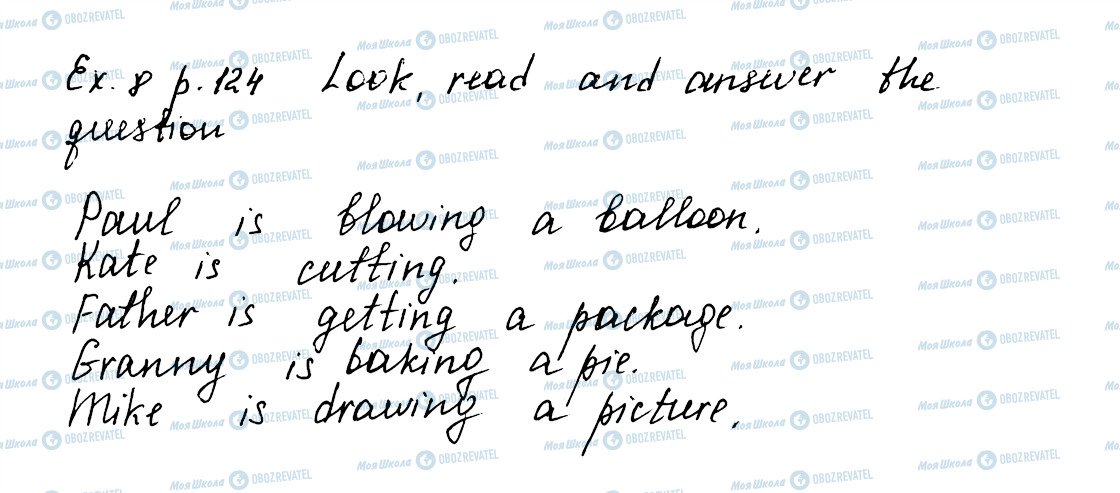 Ex. 8 p. 124 Look, read and answer the
question
Paul is blowing a balloon.
Kate is cutting.
Father is getting a package.
Granny is baking a pie.
Mike is drawing a picture.